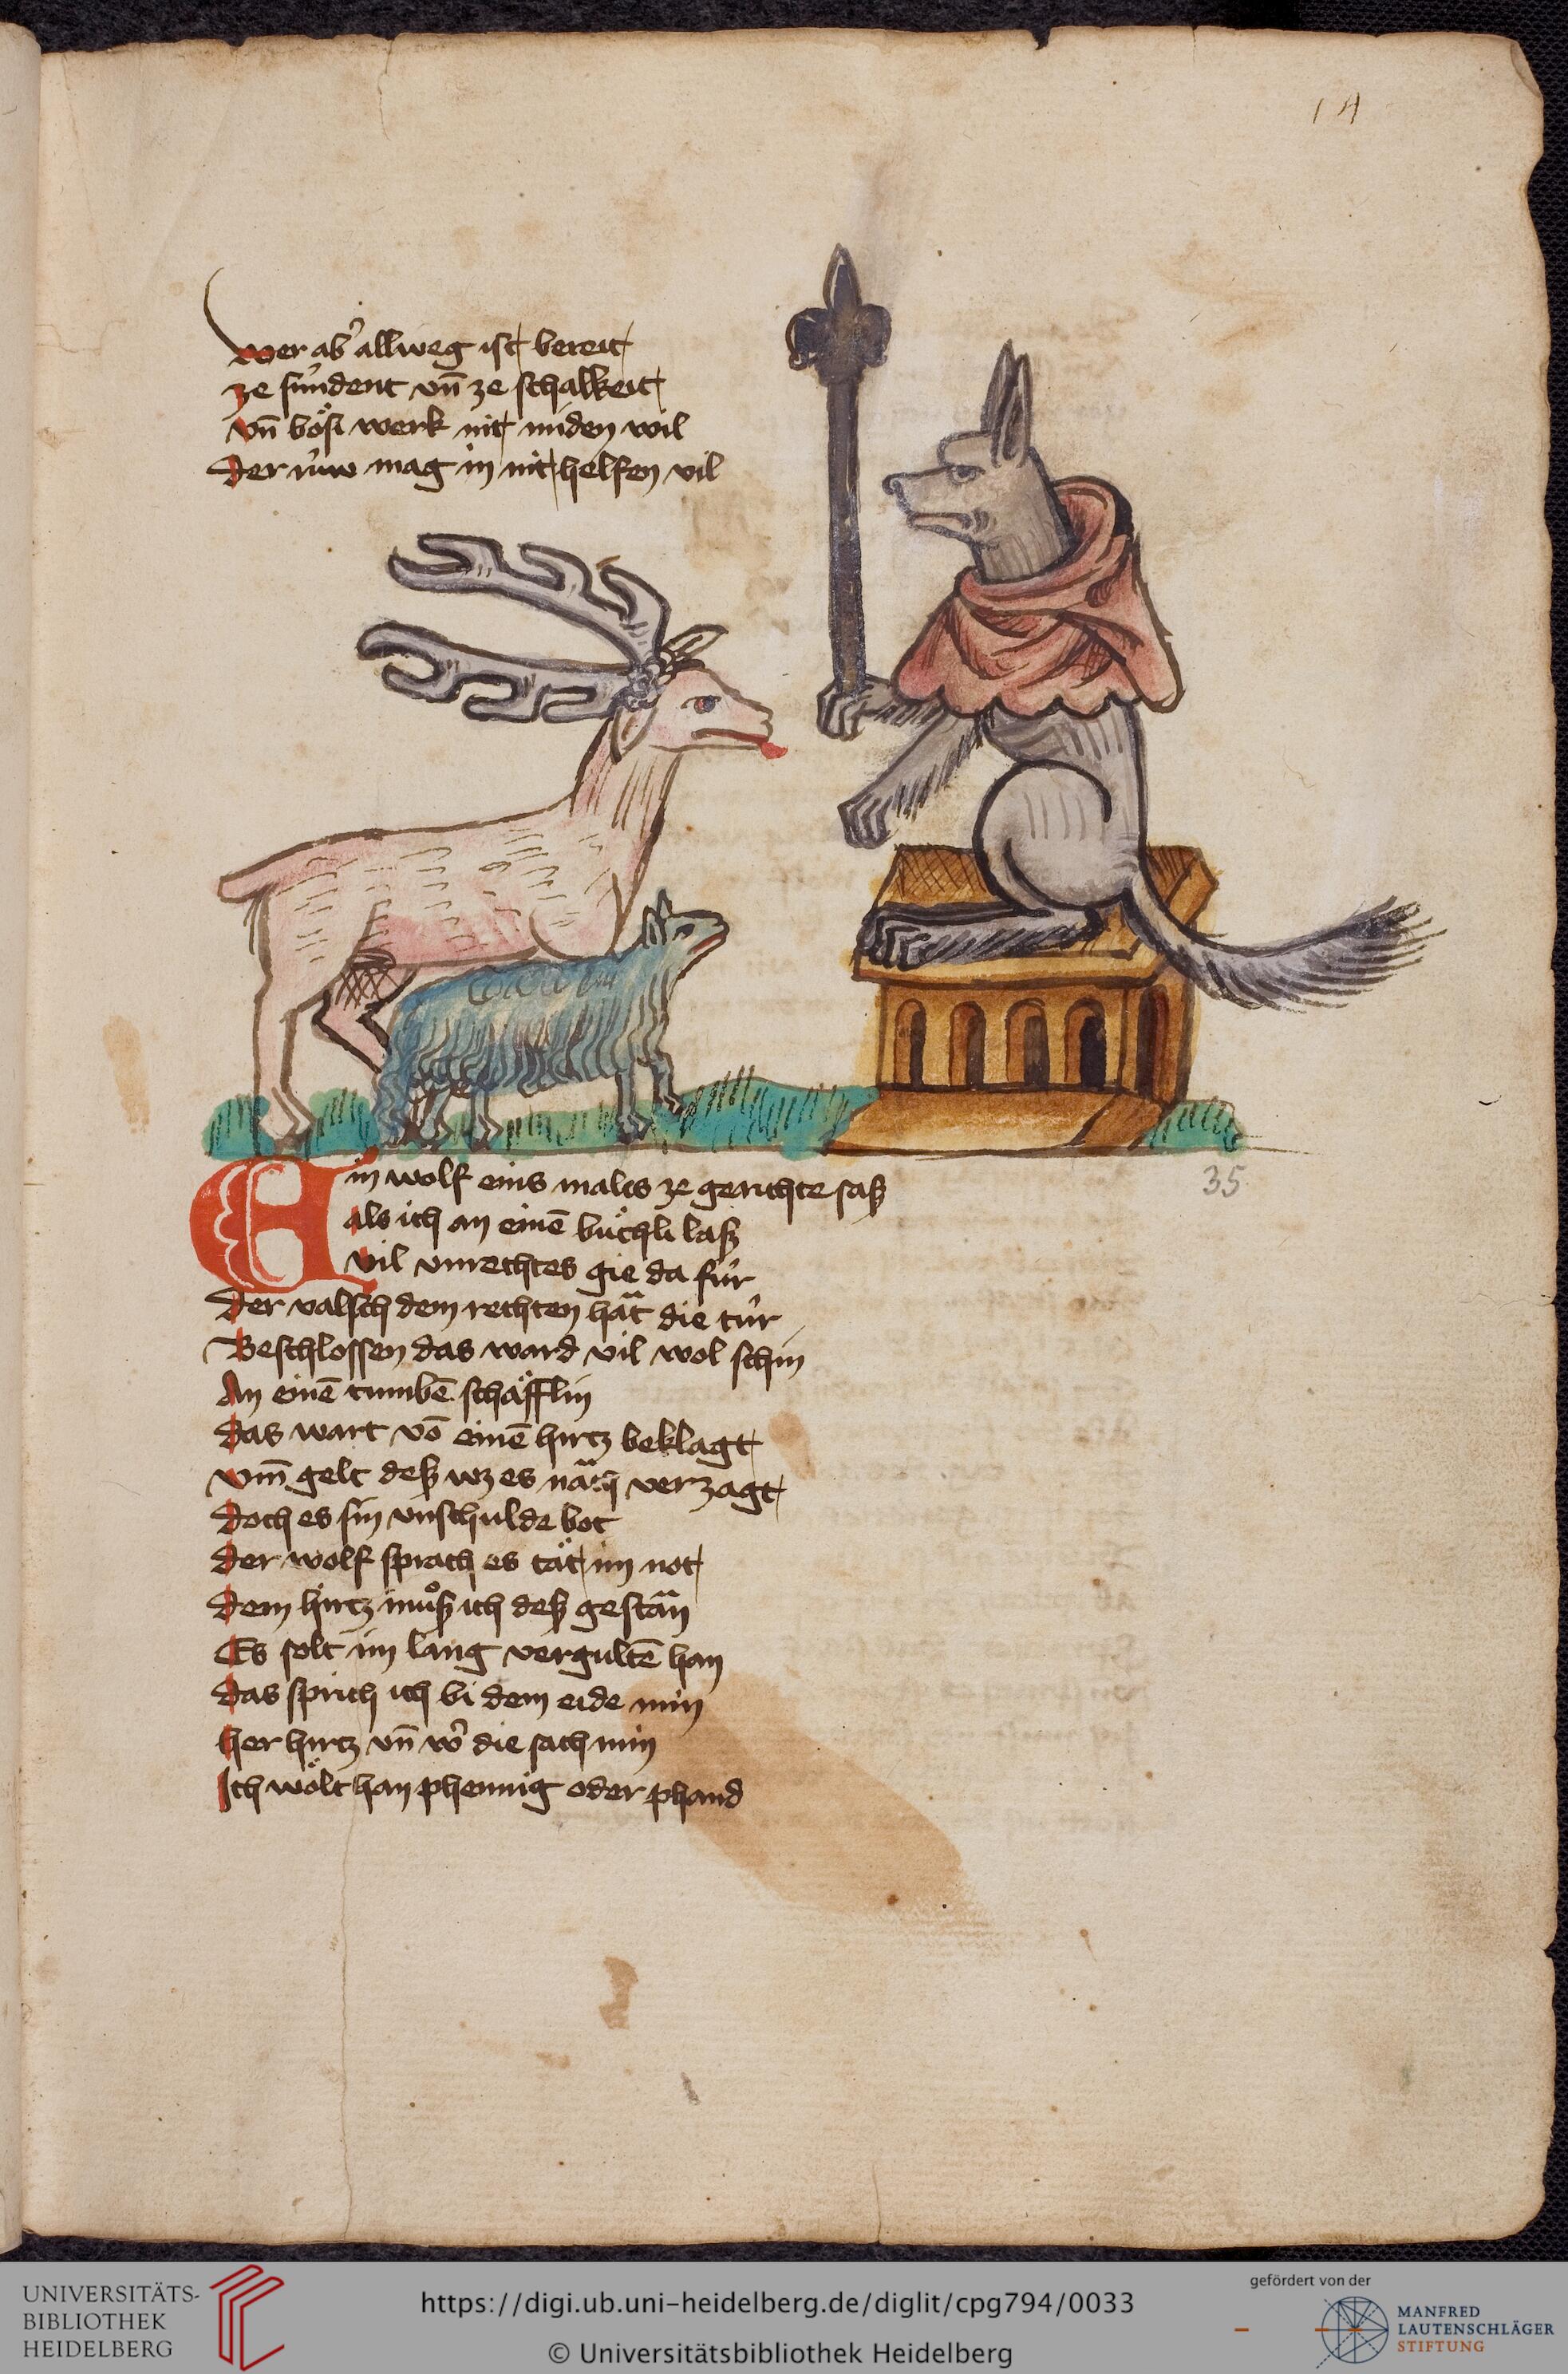 14
wer ab' allweg ist bereit
ze sündent vn̄ ze schalkeit
vn̄ bösi werk nit miden wil
Der rüw mag in nit helfen vil
35
Ein wolf eins males ze gerichte saß
als ich an einē büchli laß
vil vnrechtes gie da für
Der valsch dem rechten hät die tür
Beschlossen das ward vil wol schin
An einē tumbē schäfflin
das wart vō einē hirtz beklagt
vm̄ gelt deß wz es verzagt
doch es sin vnschulde bot
der wolf sprach es tät im not
dem hirtz muͦß ich deß gestän
Es solt im lang vergultē han
das sprich ich bi dem eide min
her hirtz vn̄ w' die sach min
Ich wölt han phennig oder phand
UNIVERSITÄTS-
BIBLIOTHEK
HEIDELBERG
https://digi.ub.uni-heidelberg.de/diglit/cpg794/0033
© Universitätsbibliothek Heidelberg
gefördert von der
MANFRED
LAUTENSCHLÄGER
STIFTUNG